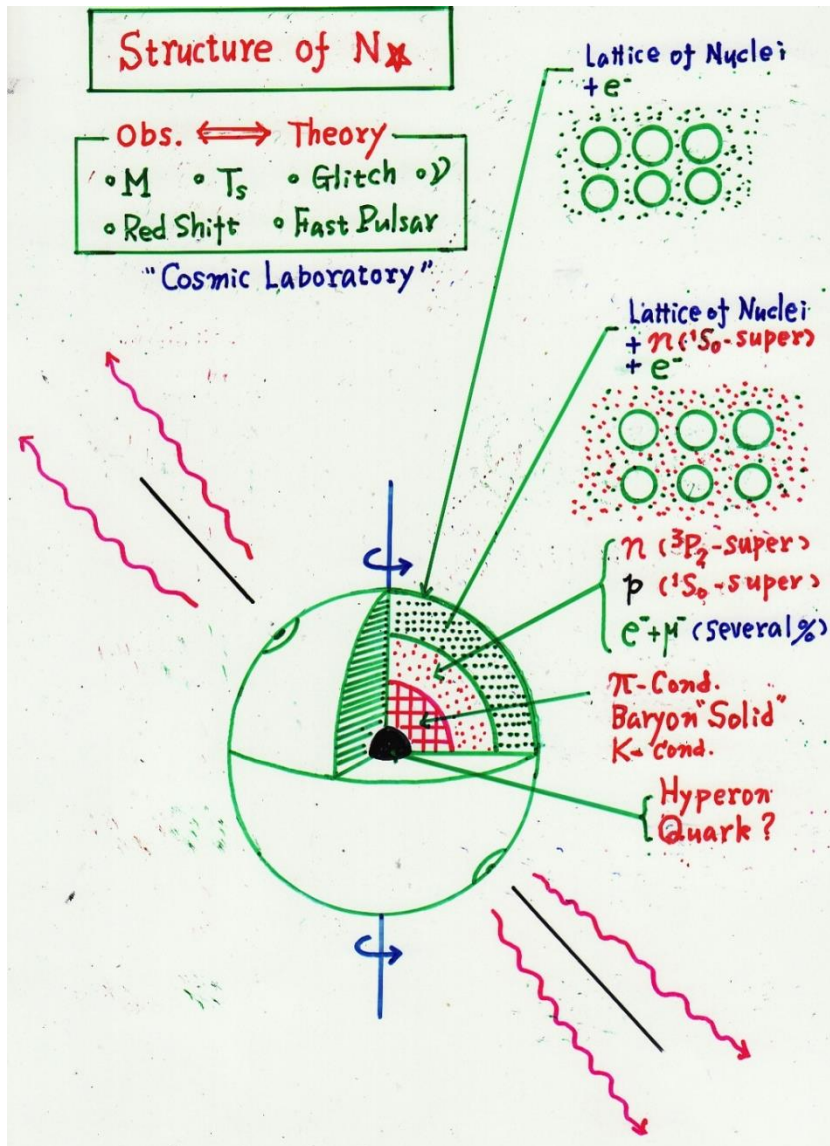 Structure of N☆
Obs. ⟺ Theory
∘M ∘Ts ∘Glitch ∘ν
∘Red Shift ∘Fast Pulsar
"Cosmic Laboratory"
Lattice of Nuclei
+ e⁻
Lattice of Nuclei
+ n(¹S₀-super)
+ e⁻
n (³P₂-super)
p (¹S₀-super)
e⁻+μ⁻ (several%)
π-Cond.
Baryon "Solid"
K-cond.
Hyperon
Quark?